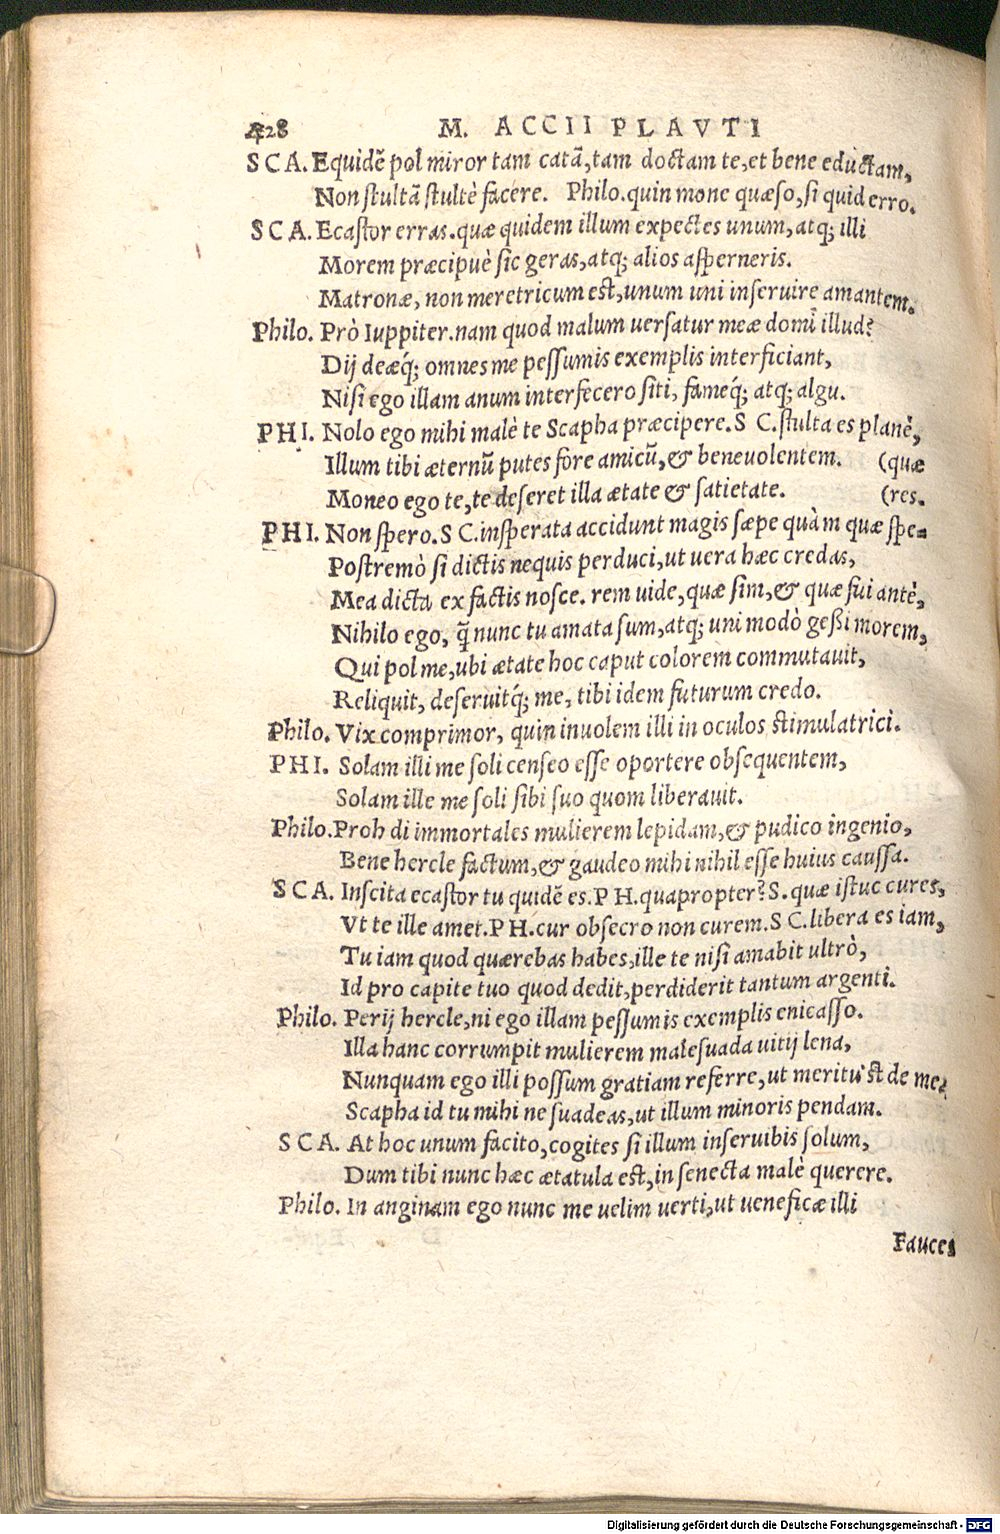 428 M. ACCII PLAVTI
SCA. Equidẽ pol miror tam catã, tam doctam te, et bene eductam,
Non stultã stultè facere. Philo. quin mone quæso, si quid erro.
SCA. Ecastor erras. quæ quidem illum expectes unum, atq; illi
Morem præcipuè sic geras, atq; alios asperneris.
Matronæ, non meretricum est, unum uni inseruire amantem.
Philo. Prò Iuppiter. nam quod malum uersatur meæ domi illud?
Dij deæq́; omnes me pessumis exemplis interficiant,
Nisi ego illam anum interfecero siti, fameq́; atq; algu.
PHI. Nolo ego mihi malè te Scapha præcipere. SC. stulta es planè,
Illum tibi æternũ putes fore amicũ, & benevolentem. (quæ
Moneo ego te, te deseret illa ætate & satietate. (res.
PHI. Non spero. SC. insperata accidunt magis sæpe quàm quæ spe-
Postremò si dictis nequis perduci, ut uera hæc credas,
Mea dicta ex factis nosce. rem uide, quæ sim, & quæ fui antè,
Nihilo ego, q̃ nunc tu amata sum, atq; uni modò geßi morem,
Qui pol me, ubi ætate hoc caput colorem commutauit,
Reliquit, deseruitq́; me, tibi idem futurum credo.
Philo. Vix comprimor, quin inuolem illi in oculos stimulatrici.
PHI. Solam illi me soli censeo esse oportere obsequentem,
Solam ille me soli sibi suo quom liberauit.
Philo. Proh di immortales mulierem lepidam, & pudico ingenio,
Bene hercle factum, & gaudeo mihi nihil esse huius caussa.
SCA. Inscita ecastor tu quidẽ es. PH. quapropter? S. quæ istuc cures,
Vt te ille amet. PH. cur obsecro non curem. SC. libera es iam,
Tu iam quod quærebas habes, ille te nisi amabit ultrò,
Id pro capite tuo quod dedit, perdiderit tantum argenti.
Philo. Perij hercle, ni ego illam pessumis exemplis enicasso.
Illa hanc corrumpit mulierem malesuada uitij lena,
Nunquam ego illi possum gratiam referre, ut meritu'st de me,
Scapha id tu mihi ne suadeas, ut illum minoris pendam.
SCA. At hoc unum facito, cogites si illum inseruibis solum,
Dum tibi nunc hæc ætatula est, in senecta malè querere.
Philo. In anginam ego nunc me uelim uerti, ut ueneficæ illi
Fauces
Digitalisierung gefördert durch die Deutsche Forschungsgemeinschaft - DFG